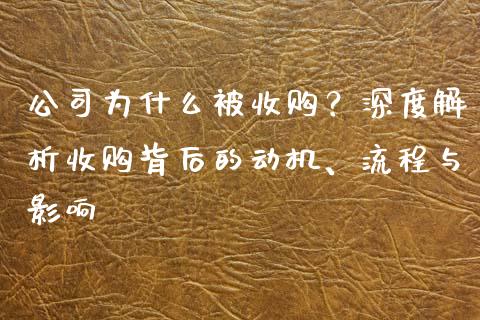 公司为什么被收购？深度解
析收购背后的动机、流程与
影响